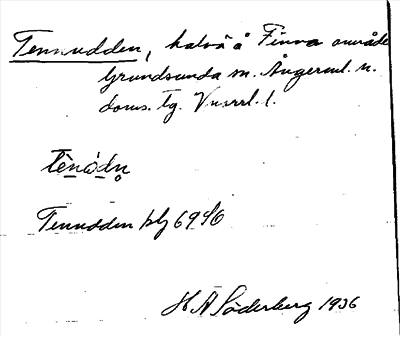 Tennudden, halvö å Finna område
Grundsunda sn. Ångerml. n.
doms. tg. Vnsrrl. l.
tènódn̥
Tennudden blg 6940
H Å Söderberg 1936